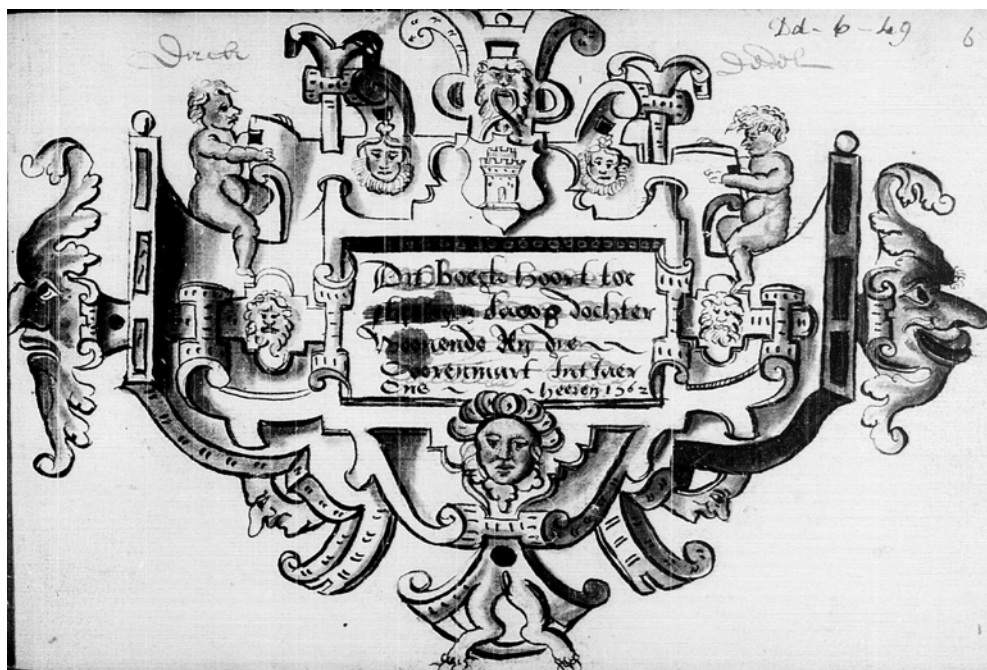 Dd - 6 - 49
6
Dit boegk hoort toe
Jacop dochter
Woenende An die
Coorenmart Int Jaer
Ons heeren 1562